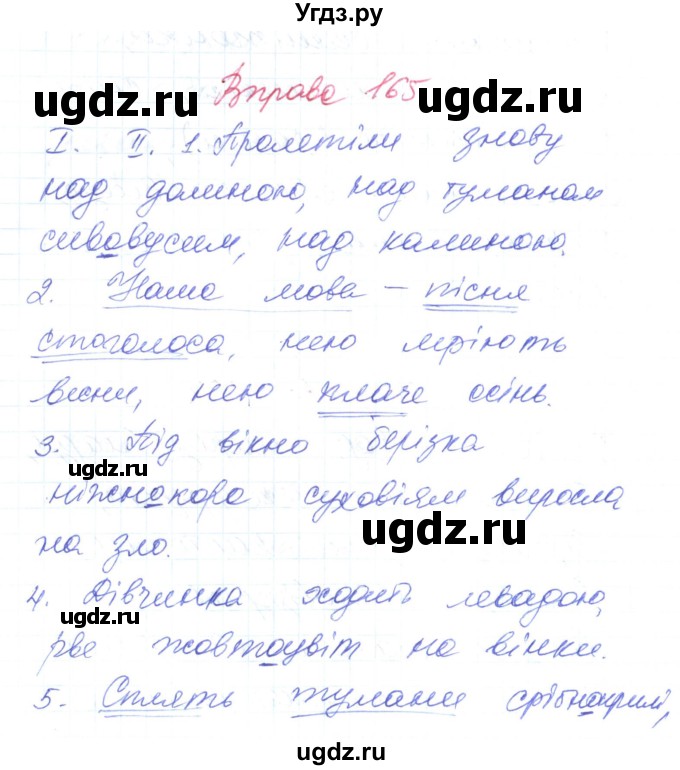 Угдз.ру
Вправа 165
I. II. 1. Пролетіли знову
над долиною, над туманом
сивовусим, над калиною.
2. Наша мова – пісня
стоголоса, нею мріють
весни, нею плаче осінь.
3. Під вікно берізка
ніжнокора суховіям виросла
на зло.
4. Дівчинка ходить левадою,
рве жовтоцвіт на вінки.
5. Сплять тумани срібнокрилі,
ugdz.ru
ugdz.ru
ugdz.ru
ugdz.ru
ugdz.ru
ugdz.ru